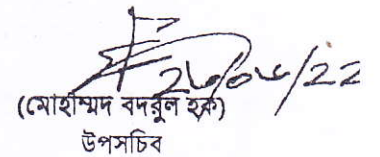 ২৬/০৬/২২
(মোহাম্মদ বদরুল হক)
উপসচিব